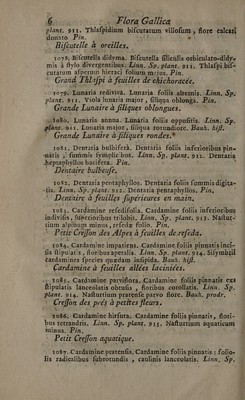 6 Flora Gallica
plant. 911. Thlaspidium biscutatum villosum, flore calcari
donato Pin.
Biscutelle à oreilles.
1078. Biscutella didyma. Biscutella siliculis orbiculato-didy-
mis à stylo divergentibus. Linn. Sp. plant. 911. Thlaspi bis-
cutatum asperum hieraci folium majus. Pin.
Grand Thlaspi à feuilles de chicoracée.
1079. Lunaria rediviva. Lunaria foliis alternis. Linn. Sp.
plant. 911. Viola lunaria major, siliqua oblonga. Pin.
Grande Lunaire à siliques oblongues.
1080. Lunaria annua. Lunaria foliis oppositis. Linn. Sp.
plant. 911. Lunaria major, siliqua rotundiore. Bauh. hist.
Grande Lunaire à siliques rondes.
1081. Dentaria bulbiferà. Dentaria foliis inferioribus pin-
natis, summis simplicibus. Linn. Sp. plant. 912. Dentaria
heptaphyllos baccifera. Pin.
Dentaire bulbeuse.
1082. Dentaria pentaphyllos. Dentaria foliis summis digita-
tis. Linn. Sp. plant. 912. Dentaria pentaphyllos. Pin.
Dentaire à feuilles supérieures en main.
1083. Cardamine resedifolia. Cardamine foliis inferioribus
indivisis, superioribus trilobis. Linn. Sp. plant. 913. Nastur-
tium alpinum minus, reseda folio. Pin.
Petit Cresson des Alpes à feuilles de reseda.
1084. Cardamine impatiens. Cardamine foliis pinnatis inci-
sis stipulatis, floribus apetalis. Linn. Sp. plant. 914. Sisymbrii
cardamines species quædam insipida. Bauh. hist.
Cardamine à feuilles allées laciniées.
1085. Cardamine parviflora. Cardamine foliis pinnatis exs
stipulatis lanceolatis obtusis, floribus corollatis. Linn. Sp.
plant. 914. Nasturtium pratense parvo flore. Bauh. prodr.
Cresson des prés à petites fleurs.
1086. Cardamine hirsuta. Cardamine foliis pinnatis, flori-
bus tetrandris. Linn. Sp. plant. 915. Nasturtium aquaticum
minus. Pin.
Petit Cresson aquatique.
1087. Cardamine pratensis. Cardamine foliis pinnatis: folio-
lis radicalibus subrotundis, caulinis lanceolatis. Linn. Sp.